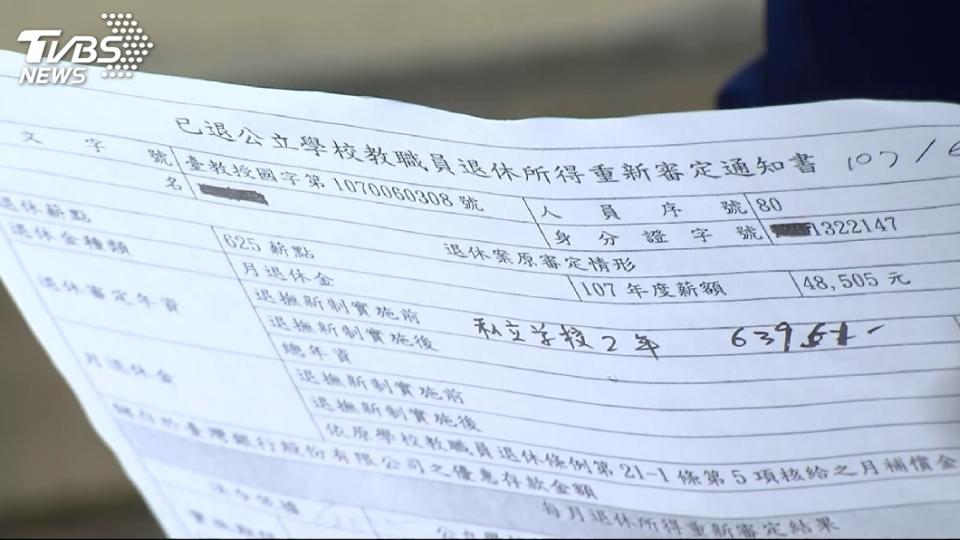 TVBS
NEWS
已退公立學校教職員退休所得重新審定通知書 107/6
文字號 臺教授國字第1070060308號 人員序號 80
名 身分證字號 1322147
退休薪點 625薪點 退休案原審定情形
退休金種類 月退休金 107年度薪額 48,505元
退休審定年資 退撫新制實施前
退撫新制實施後 私立学校2年 639
總年資
月退休金 退撫新制實施前
退撫新制實施後
依原學校教職員退休條例第21-1條第5項核給之月補償金
儲存於臺灣銀行股份有限公司之優惠存款金額
每月退休所得重新審定結果
法令依據